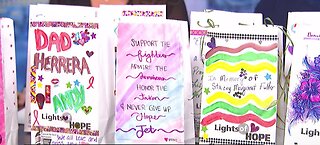 DAD
HERRERA
! ANDY
Lights of HOPE
We all love and
SUPPORT THE
Fighters
ADMIRE THE
Survivors
HONOR THE
Taken
& NEVER GIVE UP
Hope
In Memory of
Stacey Margaret Fuller
Lights of HOPE